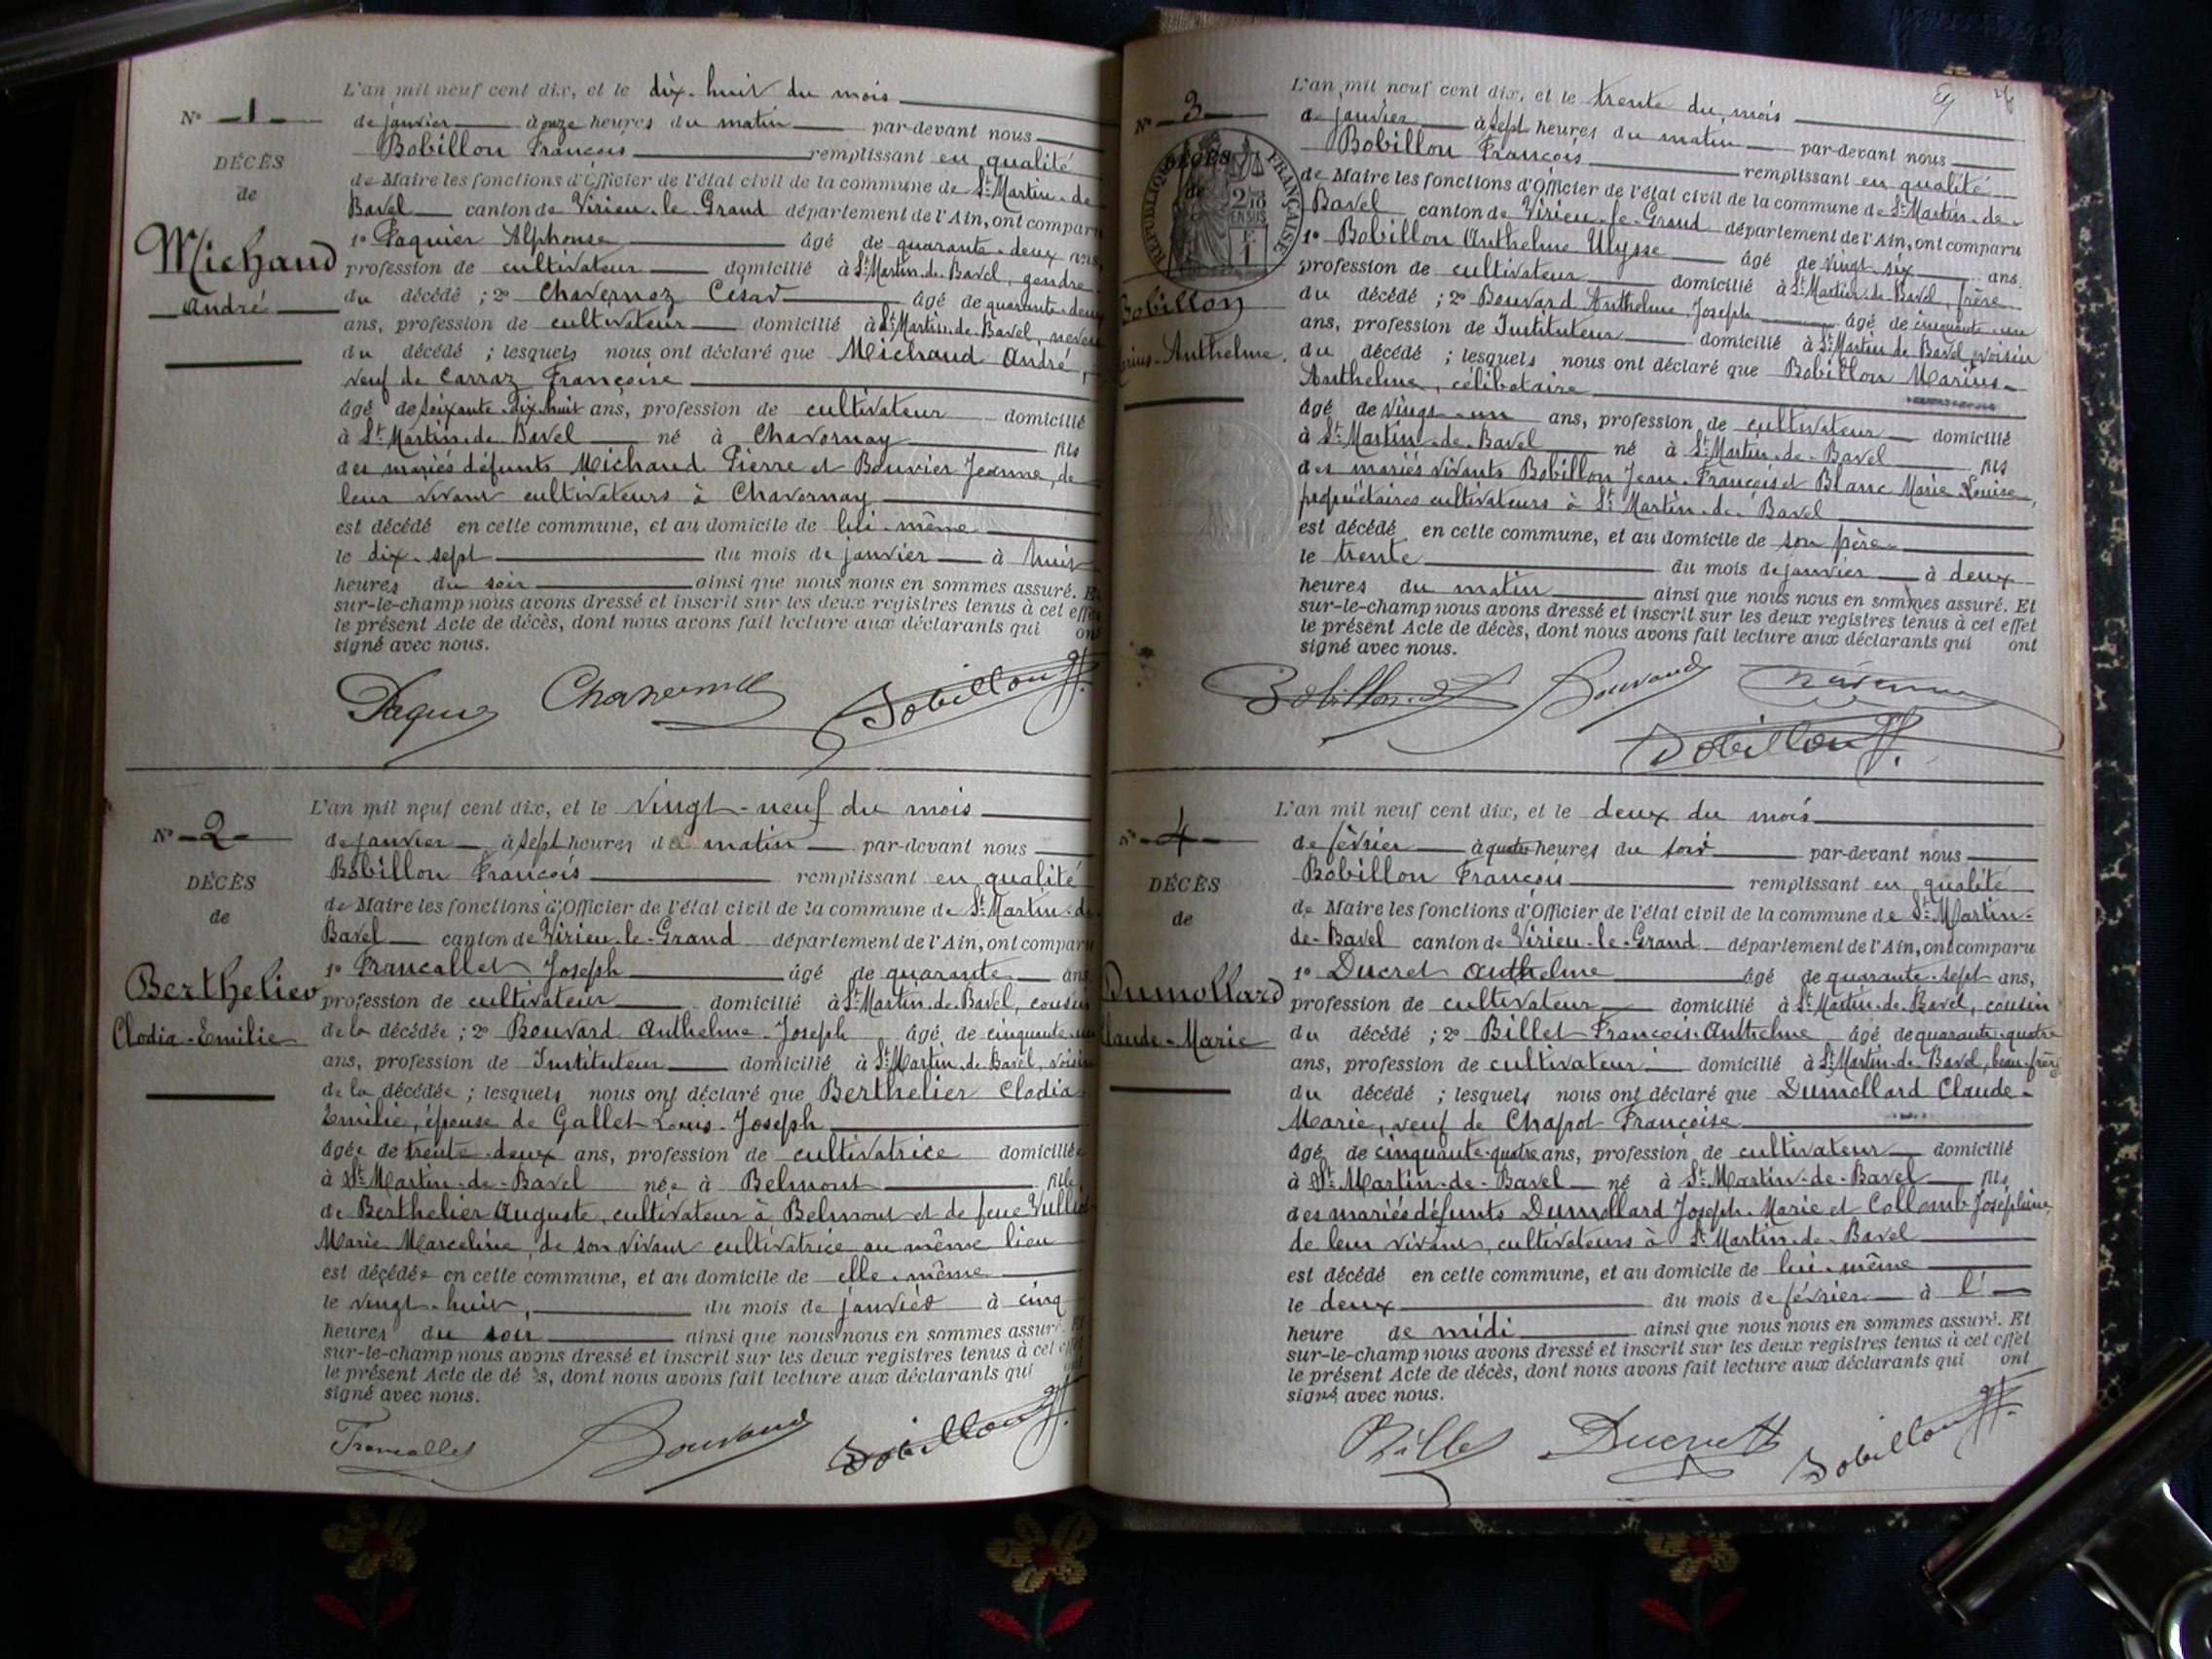 L'an mil neuf cent dix, et le dix-huit du mois
N° 1
de janvier à onze heures du matin par-devant nous
Bobillon François remplissant en qualité
DÉCÈS
de Maire les fonctions d'Officier de l'état civil de la commune de St Martin-de-
de
Bavel canton de Virieu-le-Grand département de l'Ain, ont comparu
Michaud
André
1° Paquier Alphonse âgé de quarante-deux ans
profession de cultivateur domicilié à St Martin-de-Bavel, gendre
du décédé ; 2° Chavernoz César âgé de quarante-deux
ans, profession de cultivateur domicilié à St Martin-de-Bavel, neveu
du décédé ; lesquels nous ont déclaré que Michaud André,
veuf de Carraz Françoise
âgé de soixante-dix-huit ans, profession de cultivateur domicilié
à St Martin-de-Bavel né à Chavornay fils
des mariés défunts Michaud Pierre et Bouvier Jeanne, de
leur vivant cultivateurs à Chavornay
est décédé en cette commune, et au domicile de lui-même
le dix-sept du mois de janvier à huit
heures du soir ainsi que nous nous en sommes assuré. Et
sur-le-champ nous avons dressé et inscrit sur les deux registres tenus à cet effet
le présent Acte de décès, dont nous avons fait lecture aux déclarants qui ont
signé avec nous.
Paquier Bobillon
L'an mil neuf cent dix, et le vingt-neuf du mois
N° 2
de janvier à sept heures du matin par-devant nous
Bobillon François remplissant en qualité
DÉCÈS
de Maire les fonctions d'Officier de l'état civil de la commune de St Martin-de-
de
Bavel canton de Virieu-le-Grand département de l'Ain, ont comparu
Berthelier
Clodia-Emilie
1° Francallet Joseph âgé de quarante ans
profession de cultivateur domicilié à St Martin-de-Bavel, cousin
de la décédée ; 2° Bouvard Anthelme-Joseph âgé de cinquante-un
ans, profession de Instituteur domicilié à St Martin-de-Bavel, voisin
de la décédée ; lesquels nous ont déclaré que Berthelier Clodia
Emilie, épouse de Gallet Louis-Joseph
âgée de trente-deux ans, profession de cultivatrice domiciliée
à St Martin-de-Bavel née à Belmont fille
de Berthelier Auguste, cultivateur à Belmont et de feue
Marie Marceline, de son vivant cultivatrice au même lieu
est décédée en cette commune, et au domicile de elle-même
le vingt-huit, du mois de janvier à cinq
heures du soir ainsi que nous nous en sommes assuré. Et
sur-le-champ nous avons dressé et inscrit sur les deux registres tenus à cet effet
le présent Acte de décès, dont nous avons fait lecture aux déclarants qui ont
signé avec nous.
Francallet Bouvard Bobillon
L'an mil neuf cent dix, et le trente du mois
N° 3
de janvier à sept heures du matin par-devant nous
Bobillon François remplissant en qualité
DÉCÈS
de
RÉPUBLIQUE FRANÇAISE
de Maire les fonctions d'Officier de l'état civil de la commune de St Martin-de-
Bavel canton de Virieu-le-Grand département de l'Ain, ont comparu
Bobillon
Marius-Anthelme.
1° Bobillon Anthelme Ulysse âgé de vingt-six ans.
profession de cultivateur domicilié à St Martin-de-Bavel, frère
du décédé ; 2° Bouvard Anthelme Joseph âgé de cinquante-un
ans, profession de Instituteur domicilié à St Martin de Bavel, voisin
du décédé ; lesquels nous ont déclaré que Bobillon Marius-
Anthelme, célibataire
âgé de vingt-un ans, profession de cultivateur domicilié
à St Martin-de-Bavel né à St Martin-de-Bavel fils
des mariés vivants Bobillon Jean-François et Blanc Marie Louise,
propriétaires cultivateurs à St Martin-de-Bavel
est décédé en cette commune, et au domicile de son père
le trente du mois de janvier à deux
heures du matin ainsi que nous nous en sommes assuré. Et
sur-le-champ nous avons dressé et inscrit sur les deux registres tenus à cet effet
le présent Acte de décès, dont nous avons fait lecture aux déclarants qui ont
signé avec nous.
Bobillon Bouvard
Bobillon
L'an mil neuf cent dix, et le deux du mois
N° 4
de février à quatre heures du soir par-devant nous
Bobillon François remplissant en qualité
DÉCÈS
de Maire les fonctions d'Officier de l'état civil de la commune de St Martin-
de
de-Bavel canton de Virieu-le-Grand département de l'Ain, ont comparu
Dumollard
Claude-Marie
1° Ducret Anthelme âgé de quarante-sept ans,
profession de cultivateur domicilié à St Martin-de-Bavel, cousin
du décédé ; 2° Billet François-Anthelme âgé de quarante-quatre
ans, profession de cultivateur domicilié à St Martin-de-Bavel, beau-frère
du décédé ; lesquels nous ont déclaré que Dumollard Claude-
Marie, veuf de Chapot Françoise
âgé de cinquante-quatre ans, profession de cultivateur domicilié
à St Martin-de-Bavel né à St Martin-de-Bavel fils
des mariés défunts Dumollard Joseph-Marie et Collomb Joséphine,
de leur vivant, cultivateurs à St Martin-de-Bavel
est décédé en cette commune, et au domicile de lui-même
le deux du mois de février à l'
heure de midi ainsi que nous nous en sommes assuré. Et
sur-le-champ nous avons dressé et inscrit sur les deux registres tenus à cet effet
le présent Acte de décès, dont nous avons fait lecture aux déclarants qui ont
signé avec nous.
Billet Ducret Bobillon